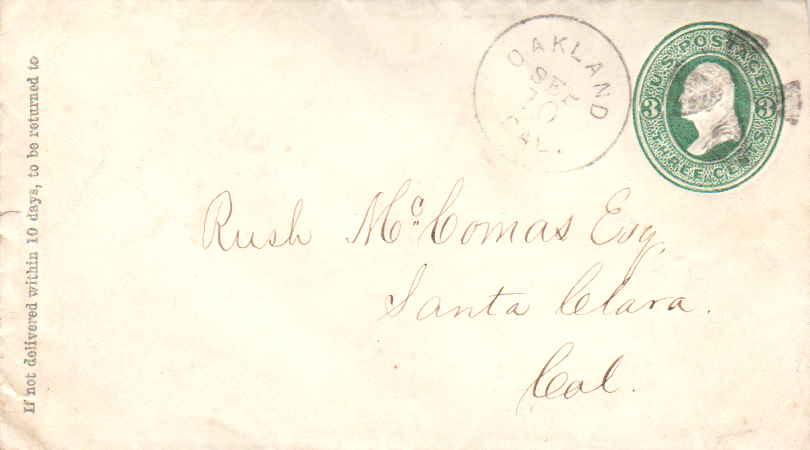 If not delivered within 10 days, to be returned to
OAKLAND
SEP
10
CAL.
U.S. POSTAGE
3 3
THREE CENTS
Rush Mc.Comas Esq,
Santa Clara.
Cal.